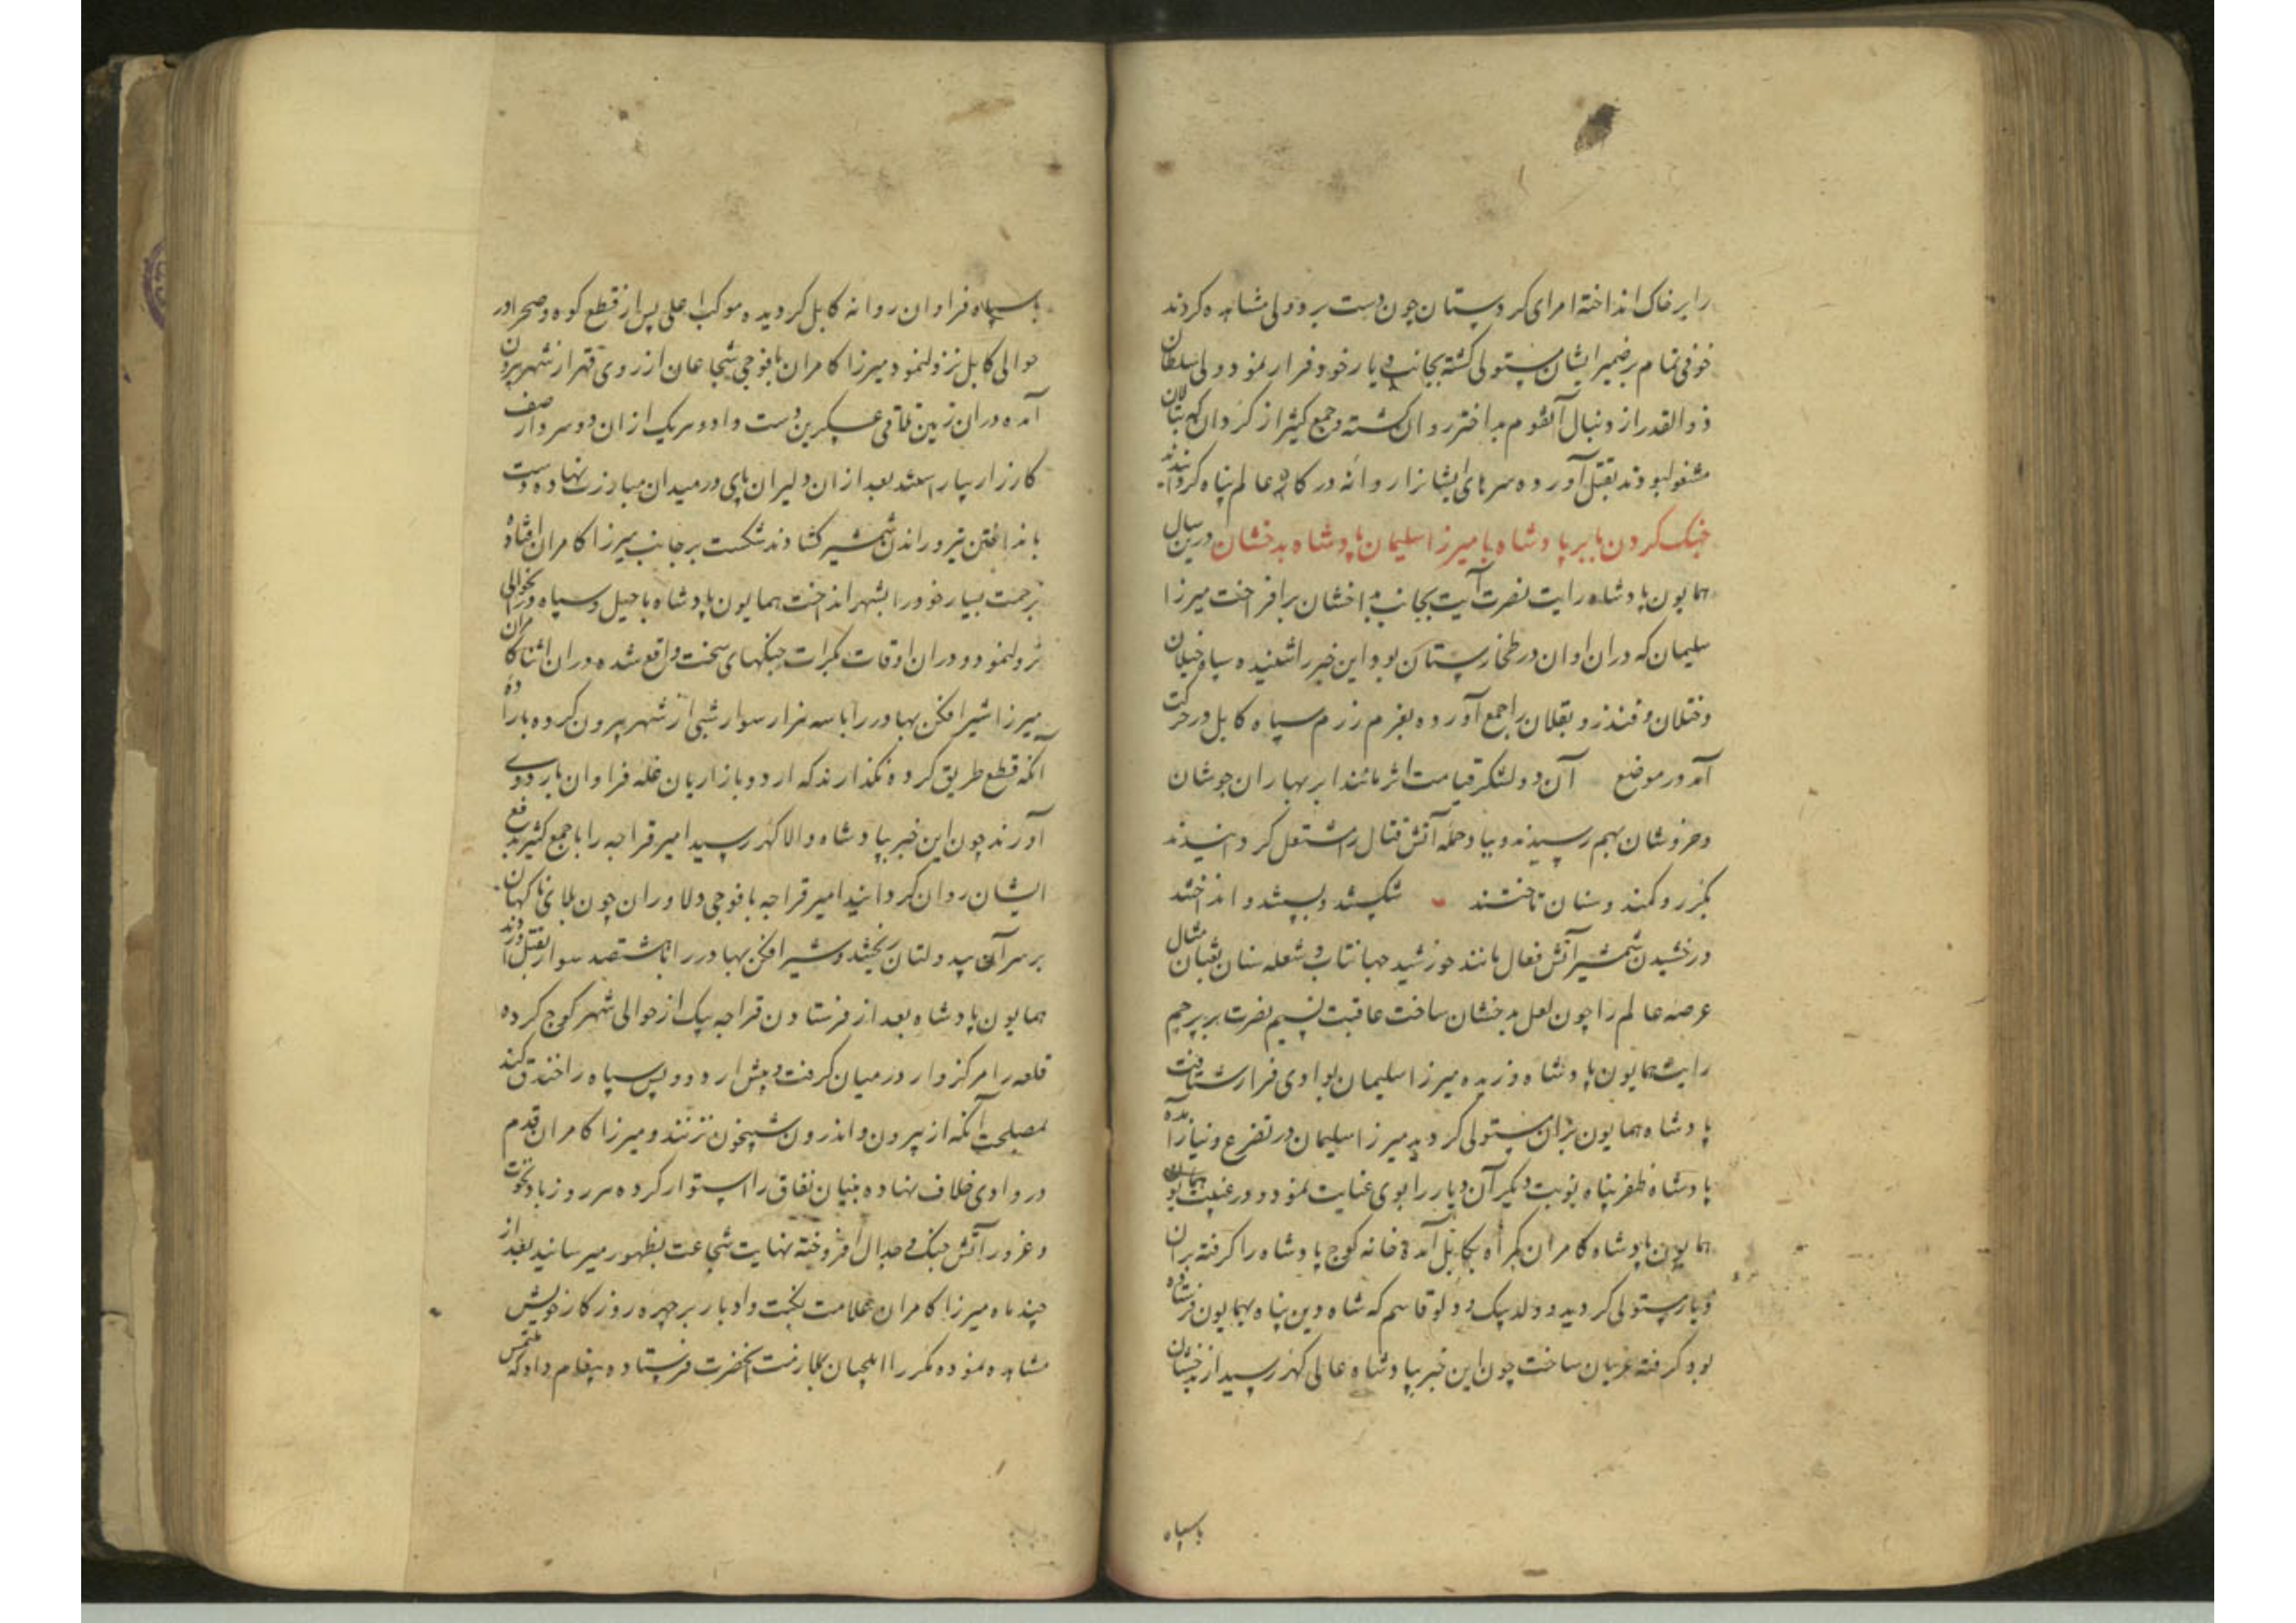 را بر خاک انداخته امرای کردستان چون دست برد ولی مشاهده کردند
خوفی تمام بر ضمیر ایشان مستولی گشته بجانب دیار خود فرار نمود ولی سلطان
ذوالقدر از دنبال آنقوم بد اختر روان گشته و جمع کثیر از کردان که بتالان
مشغول بودند بقتل آورده سرهای ایشانرا روانه درگاه عالم پناه گردانیدند
جنک کردن بابر پادشاه با میرزا سلیمان پادشاه بدخشان درین سال
همایون پادشاه رایت نصرت آیت بجانب بدخشان برافراخت میرزا
سلیمان که دران اوان در طخارستان بود این خبر را شنیده سپاه
وختلان و قندز و بقلان را جمع آورده بعزم رزم سپاه کابل در حرکت
آمد در موضع آن دو لشکر قیامت اثر مانند ابر بهاران جوشان
وخروشان بهم رسیدند و بباد حمله آتش قتال را مشتعل گردانیدند
بگرز و کمند و سنان تاختند شکستند و بستند و انداختند
درخشیدن شمشیر آتش فعال مانند خورشید جهانتاب و شعله سنان ثعبان مثال
عرصه عالم را چون لعل بدخشان ساخت عاقبت نسیم نصرت بر پرچم
رایت همایون پادشاه وزیده میرزا سلیمان بوادی فرار شتافت
پادشاه همایون بران مستولی گردید میرزا سلیمان در تضرع و نیاز آمده
پادشاه ظفر پناه نوبت دیگر آن دیار را بوی عنایت نمود و در غیبت
همایون پادشاه کامران گمراه بکابل آمده خانه کوچ پادشاه را گرفته بران
دیار مستولی گردید و ولد بیک و ولو قاسم که شاه دین پناه بهمایون فرستاده
بود گرفته عریان ساخت چون این خبر بپادشاه عالی گهر رسید از بدخشان
باسپاه
باسپاه فراوان روانه کابل گردیده موکب اعلی پس از قطع کوه و صحرا در
حوالی کابل نزول نمود میرزا کامران با فوجی شجاعان از روی قهر از شهر بیرون
آمده دران زمین تلاقی عسکرین دست داد و هر یک ازان دو سردار صف
کارزار بیاراستند بعد ازان دلیران پای در میدان مبارزت نهاده دست
بانداختن تیر و راندن شمشیر گشادند شکست بر جانب میرزا کامران افتاده
بزحمت بسیار خود را بشهر انداخت همایون پادشاه با خیل و سپاه در حوالی
نزول نمود و دران اوقات بکرات جنگهای سخت واقع شده دران اثنا کامران
میرزا شیر افکن بهادر را با سه هزار سوار شبی از شهر بیرون کرده باراده
آنکه قطع طریق کرده نگذارند که اردو بازاریان غله فراوان باردوی
آورند چون این خبر بپادشاه والا گهر رسید امیر قراجه را با جمع کثیر بدفع
ایشان روان گردانید امیر قراجه با فوجی دلاوران چون بلای ناگهان
بر سر آن بیدولتان ریختند و شیر افکن بهادر را با ششصد سوار بقتل آوردند
همایون پادشاه بعد از فرستادن قراجه بیک از حوالی شهر کوچ کرده
قلعه را مرکزوار درمیان گرفت و پیش اردو و پس سپاه را خندق کند
بمصلحت آنکه از بیرون و اندرون شبیخون نزنند و میرزا کامران قدم
در وادی خلاف نهاده بنیان نفاق را استوار کرده هر روز بباد نخوت
و غرور آتش جنک و جدال افروخته نهایت شجاعت بظهور میرسانید بعد از
چند ماه میرزا کامران علامت نکبت و ادبار بر چهره روزگار خویش
مشاهده نموده مکرر ایلچیان بملازمت آنحضرت فرستاده پیغام داد که ملتمس